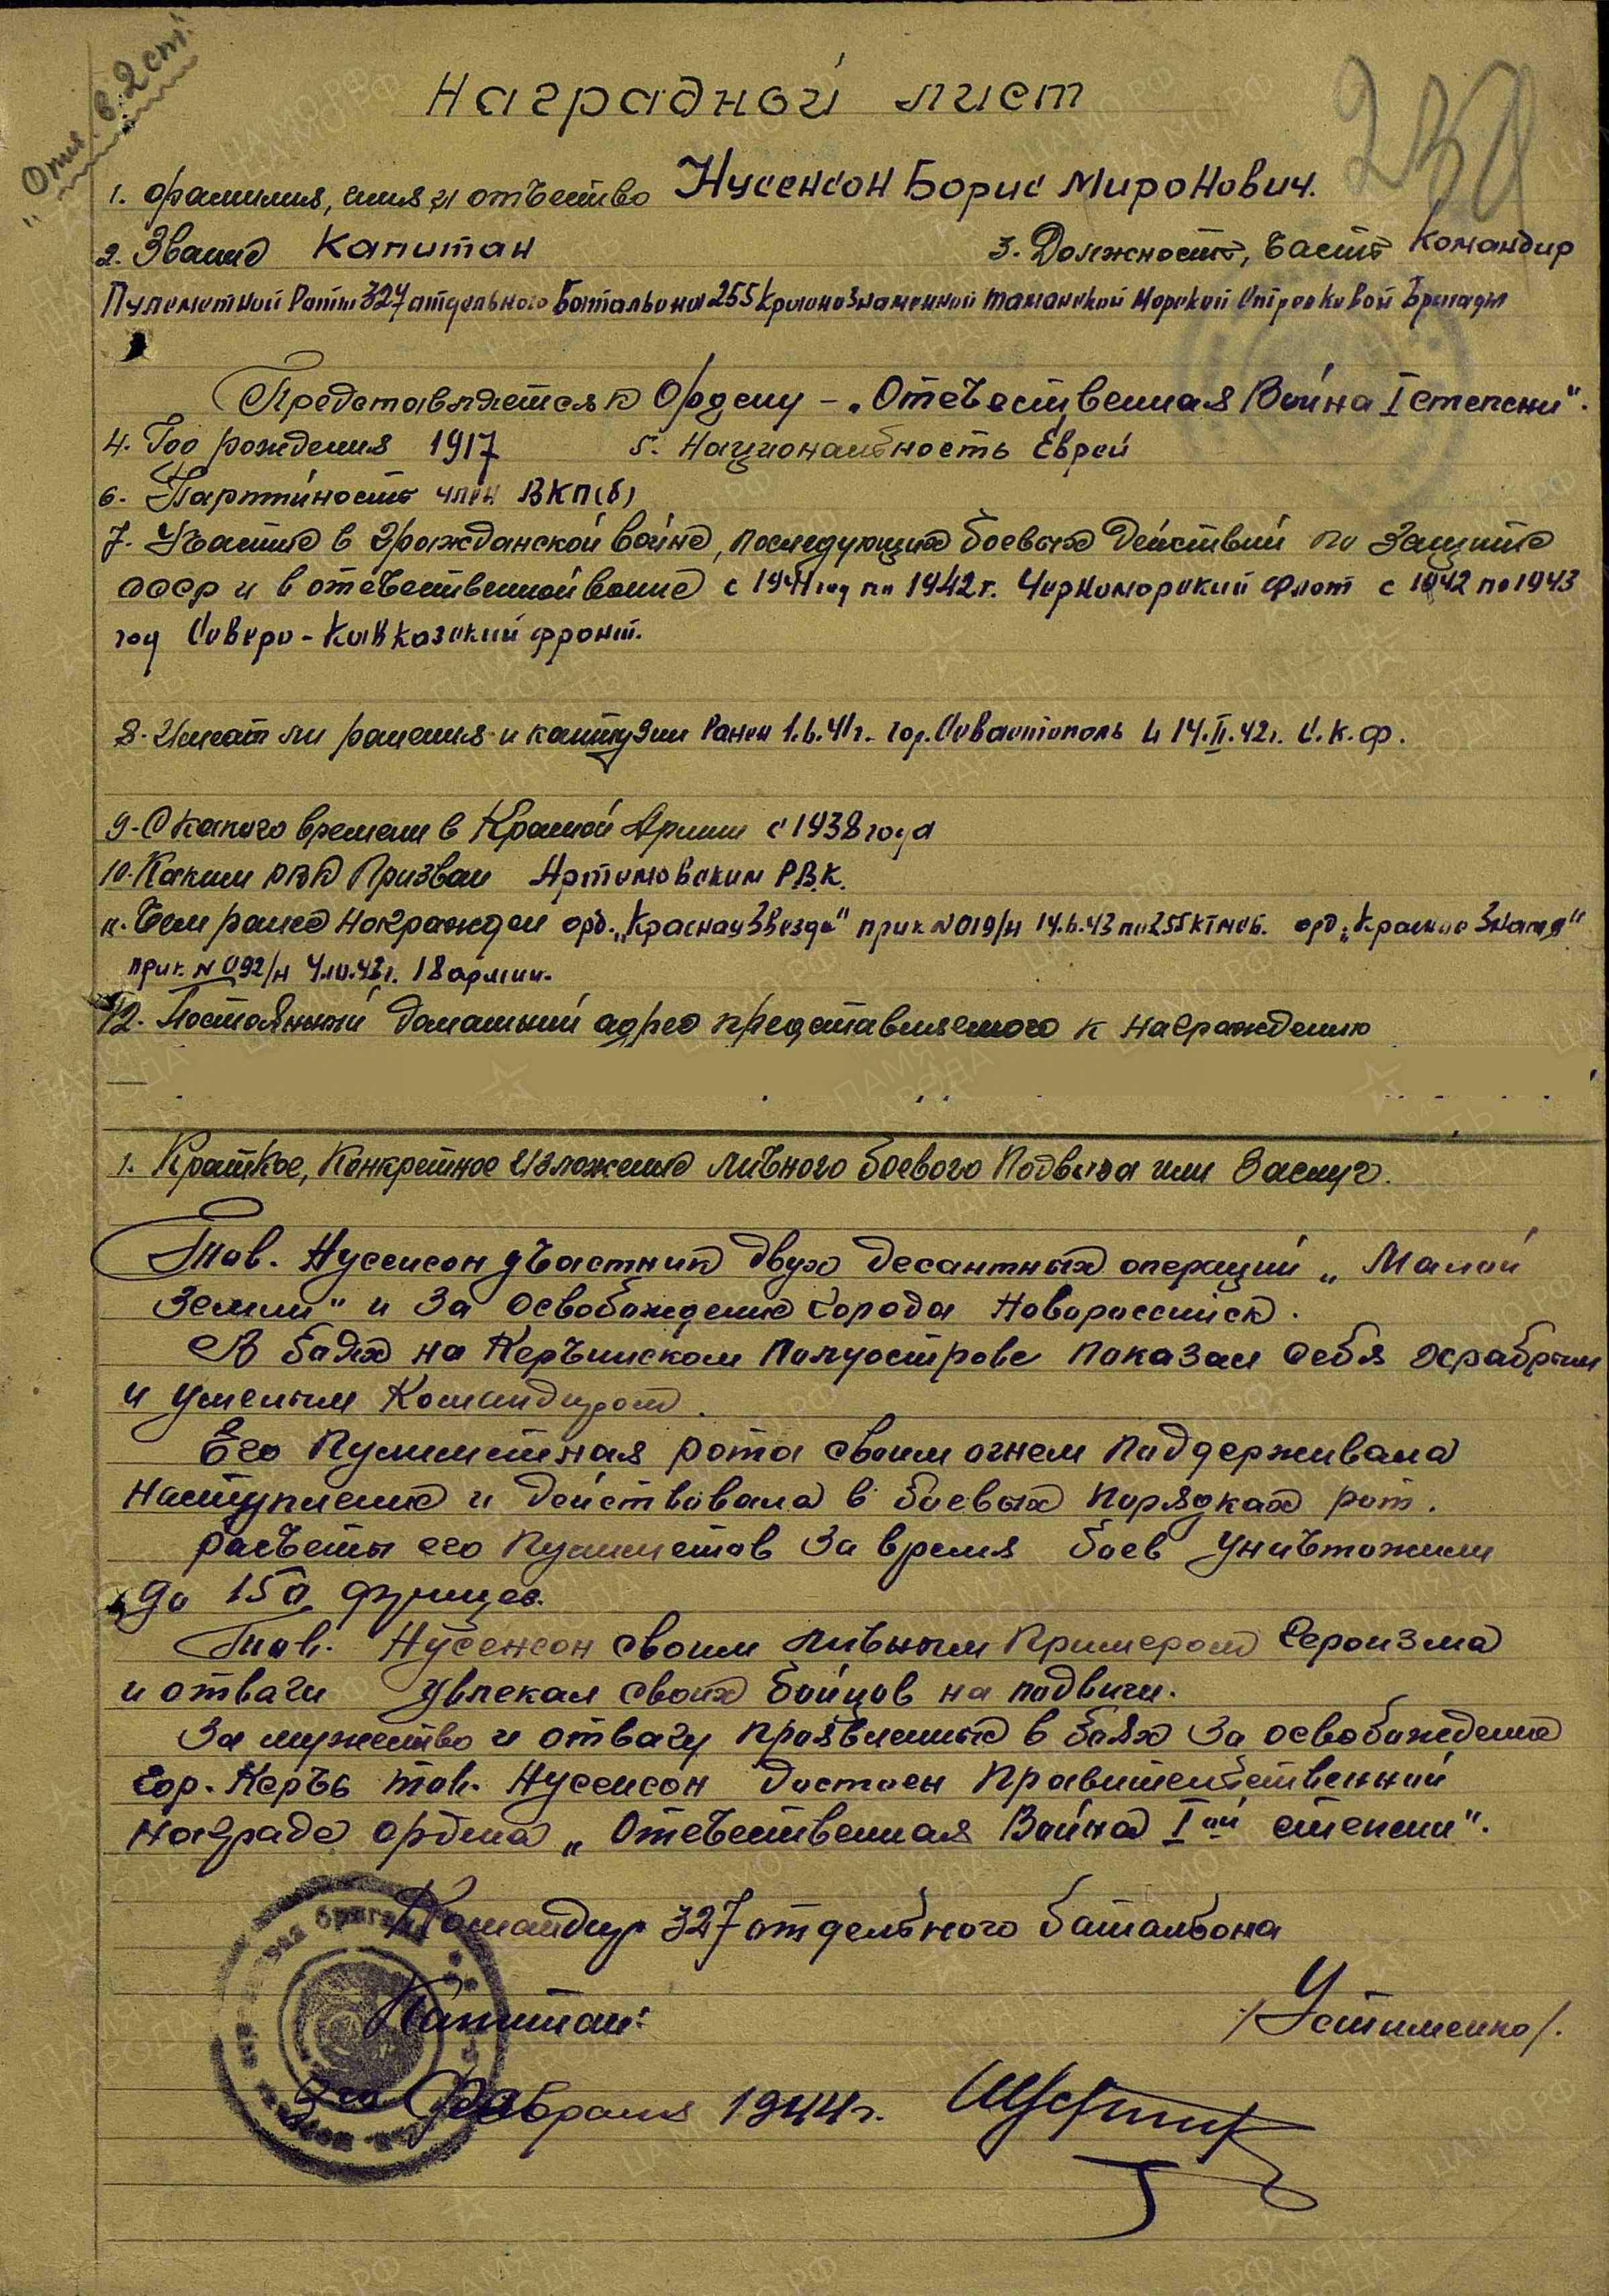 "Отл. в. 2 ст.
Наградной лист
1. Фамилия, имя и отчество Нусенсон Борис Миронович.
2. Звание Капитан 3. Должность, часть Командир
Пулеметной Роты 327 отдельного Батальона 255 Краснознаменной Таманской Морской Стрелковой Бригады
Представляется к Ордену – „Отечественная Война I степени".
4. Год рождения 1917 5. Национальность Еврей
6. Партийность член ВКП(б)
7. Участие в гражданской войне, последующих боевых действий по защите
СССР и в отечественной войне с 1941 год по 1942 г. Черноморский флот с 1942 по 1943
год Северо-Кавказский фронт.
8. Имеет ли ранения и контузии Ранен 1.6.41г. гор. Севастополь и 14.II.42г. С.К.Ф.
9. С какого времени в Красной Армии с 1938 года
10. Каким РВК Призван Артемовским Р.В.К.
11. Чем ранее награжден орд. „Красная Звезда" прик N 019/н 14.6.43 по 255 КТМСБ. орд. „Красное Знамя"
прик. N 092/н 4.10.43г. 18 армии.
12. Постоянный домашний адрес представляемого к награждению
1. Краткое, Конкретное изложение личного боевого Подвига или Заслуг.
Тов. Нусенсон участник двух десантных операций „Малой
Земли" и За освобождение города Новороссийск.
В боях на Керчинском Полуострове показал себя храбрым
и умелым Командиром.
Его Пулиметная рота своим огнем поддерживала
наступление и действовала в боевых порядках рот.
Расчеты его Пулиметов За время боев уничтожили
до 150 фрицев.
Тов. Нусенсон своим личным Примером героизма
и отваги увлекал своих бойцов на подвиги.
За мужество и отвагу проявленные в боях За освобождение
гор. Керчь тов. Нусенсон достоен Правительственной
награде ордена „Отечественная Война I ой степени".
Командир 327 отдельного батальона
Капитан: /Устименко/.
3го Февраля 1944г.